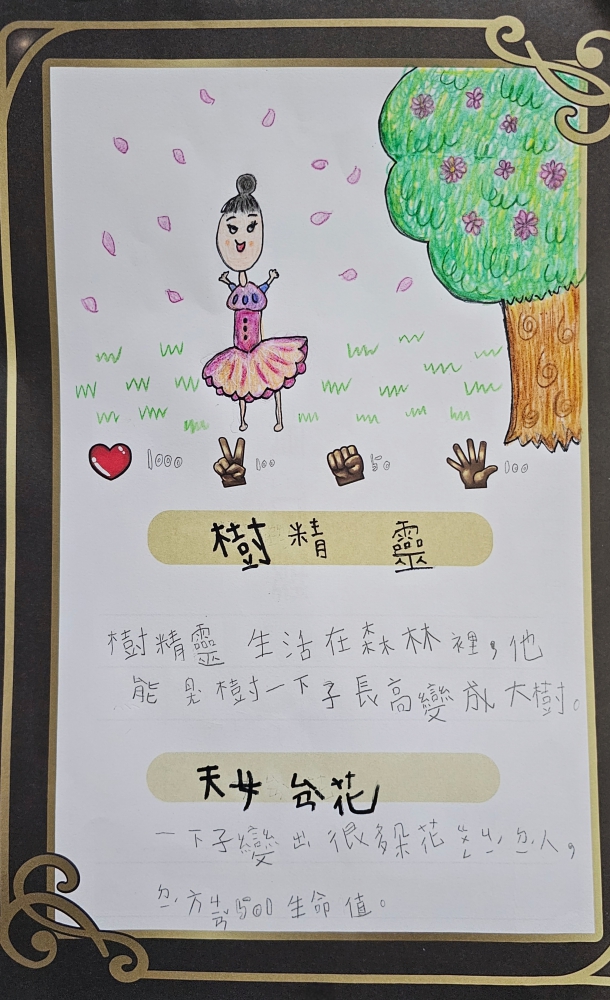 1000 100 50 100
樹精靈
樹精靈生活在森林裡，他
能樹一下子長高變成大樹。
天女ㄙㄢˋ花
一下子變出很多朵花人，
ㄉㄧˊ方生命值。